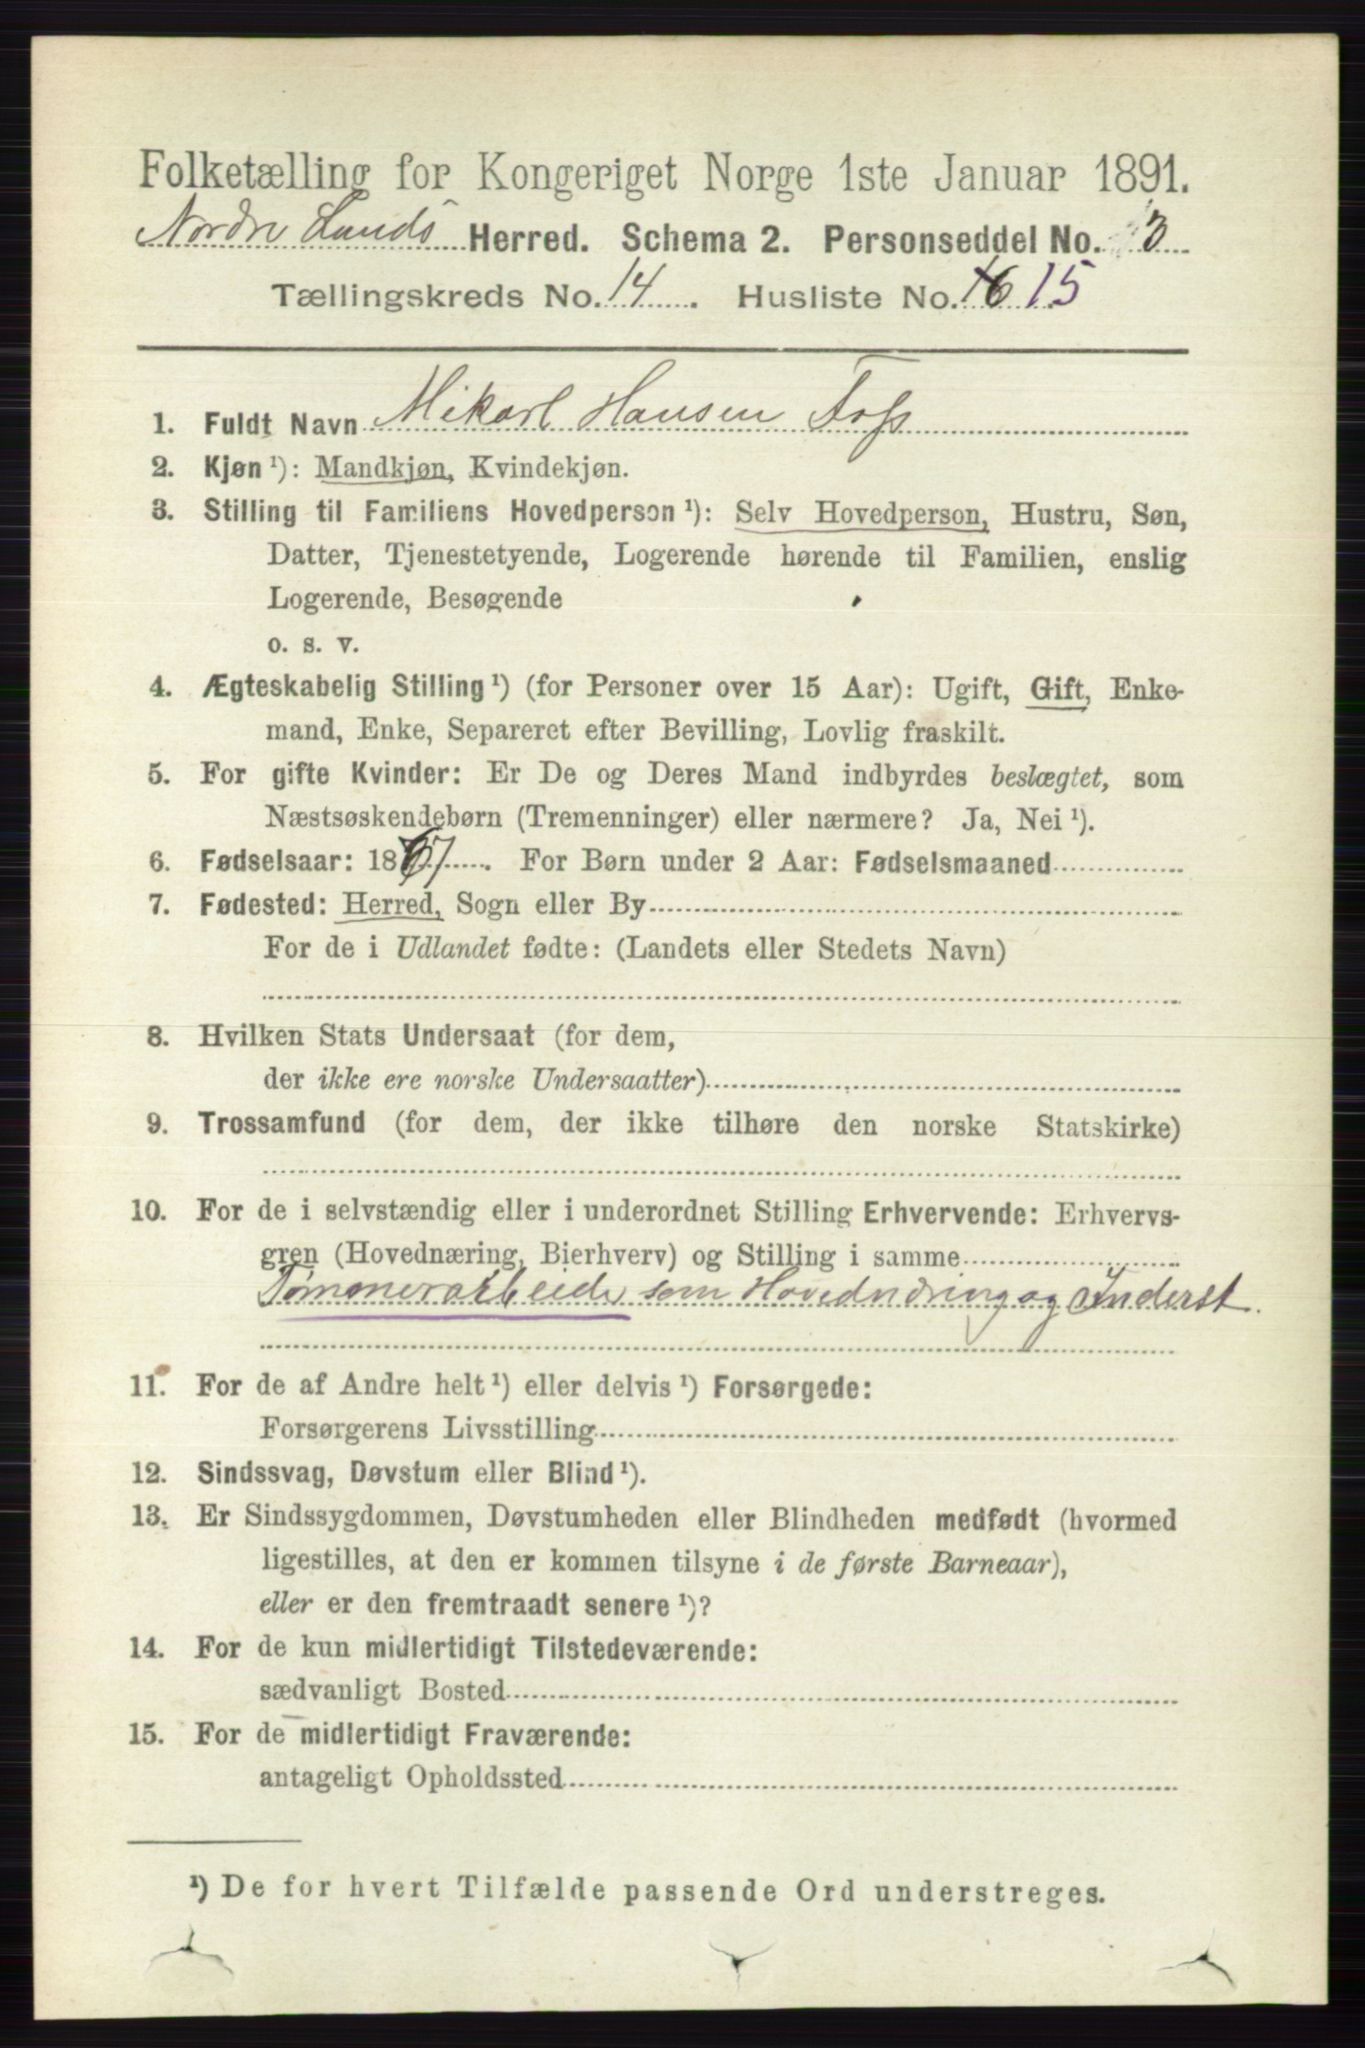 Folketælling for Kongeriget Norge 1ste Januar 1891.
Nordre Lands Herred. Schema 2. Personseddel No. 3
Tællingskreds No. 14. Husliste No. 16 15
1. Fuldt Navn Mikael Hansen Foss
2. Kjøn ¹): Mandkjøn, Kvindekjøn.
3. Stilling til Familiens Hovedperson ¹): Selv Hovedperson, Hustru, Søn,
Datter, Tjenestetyende, Logerende hørende til Familien, enslig
Logerende, Besøgende
o. s. v.
4. Ægteskabelig Stilling ¹) (for Personer over 15 Aar): Ugift, Gift, Enke-
mand, Enke, Separeret efter Bevilling, Lovlig fraskilt.
5. For gifte Kvinder: Er De og Deres Mand indbyrdes beslægtet, som
Næstsøskendebørn (Tremenninger) eller nærmere? Ja, Nei ¹).
6. Fødselsaar: 1867. For Børn under 2 Aar: Fødselsmaaned
7. Fødested: Herred, Sogn eller By
For de i Udlandet fødte: (Landets eller Stedets Navn)
8. Hvilken Stats Undersaat (for dem,
der ikke ere norske Undersaatter)
9. Trossamfund (for dem, der ikke tilhøre den norske Statskirke)
10. For de i selvstændig eller i underordnet Stilling Erhvervende: Erhvervs-
gren (Hovednæring, Bierhverv) og Stilling i samme
Tømmerarbeide som Hovednæring og Inderst.
11. For de af Andre helt ¹) eller delvis ¹) Forsørgede:
Forsørgerens Livsstilling
12. Sindssvag, Døvstum eller Blind ¹).
13. Er Sindssygdommen, Døvstumheden eller Blindheden medfødt (hvormed
ligestilles, at den er kommen tilsyne i de første Barneaar),
eller er den fremtraadt senere ¹)?
14. For de kun midlertidigt Tilstedeværende:
sædvanligt Bosted
15. For de midlertidigt Fraværende:
antageligt Opholdssted
¹) De for hvert Tilfælde passende Ord understreges.